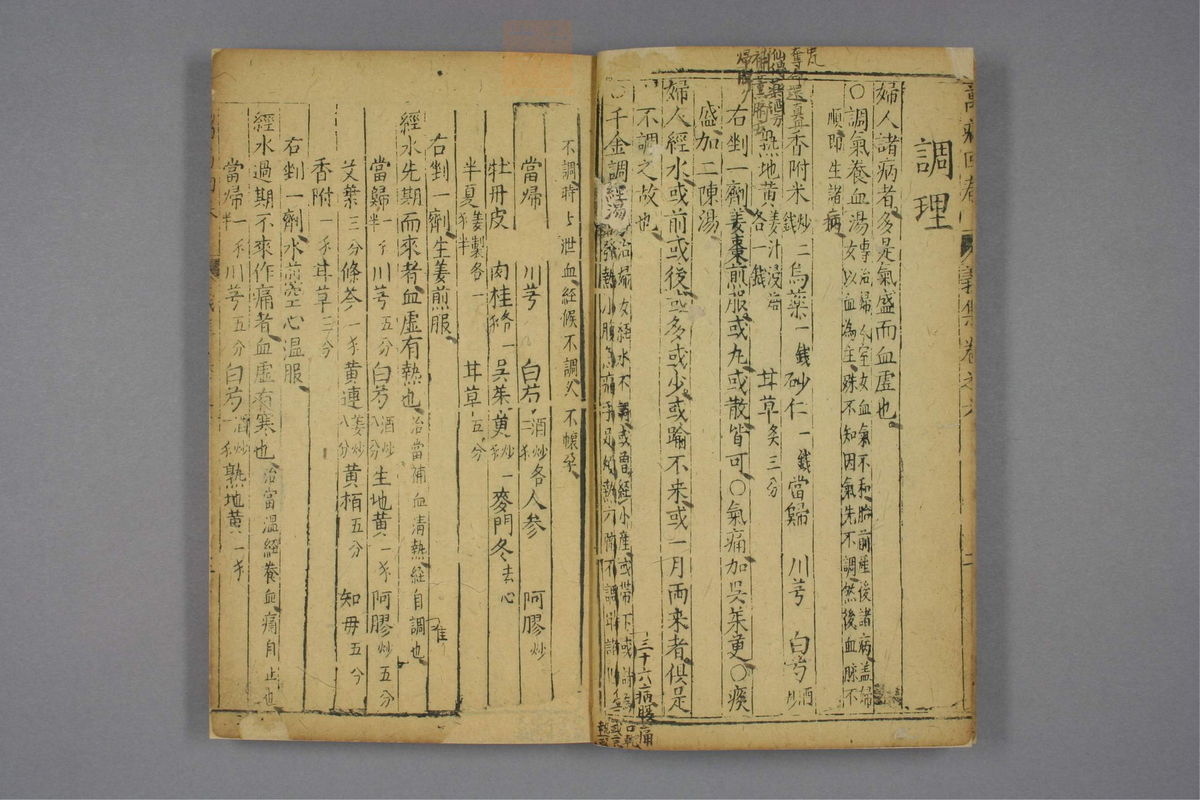 調理
婦人諸病者多是氣盛而血虛也
○調氣養血湯專治婦人室女血氣不和胎前產後諸病蓋婦
女以血為主殊不知因氣先不調然後血脉不
順即生諸病
香附米炒二錢烏藥一錢砂仁一錢當歸川芎白芍酒炒
熟地黃姜汁浸焙各一錢甘草炙三分
右剉一劑姜棗煎服或九或散皆可○氣痛加吳茱萸○痰
盛加二陳湯
婦人經水或前或後或多或少或踰不來或一月兩來者俱是
不調之故也
○千金調經湯治婦女經水不調或曾經小產或帶下
三十六病腰痛
不調時
泄血經候不調久不懷孕
當帰川芎白芍酒炒各人參阿膠炒
牡丹皮肉桂各一吳茱萸炒一麥門冬去心
半夏姜製各一甘草五分
右剉一劑生姜煎服
經水先期而來者血虛有熱也治當補血清熱經自調也
當歸川芎五分白芍酒炒八分生地黃阿膠炒五分
艾葉三分條芩黃連姜炒八分黃栢五分知毋五分
香附甘草三分
右剉一劑水煎空心温服
經水過期不來作痛者血虛有寒也治當温經養血痛自止也
當帰川芎五分白芍酒炒熟地黃